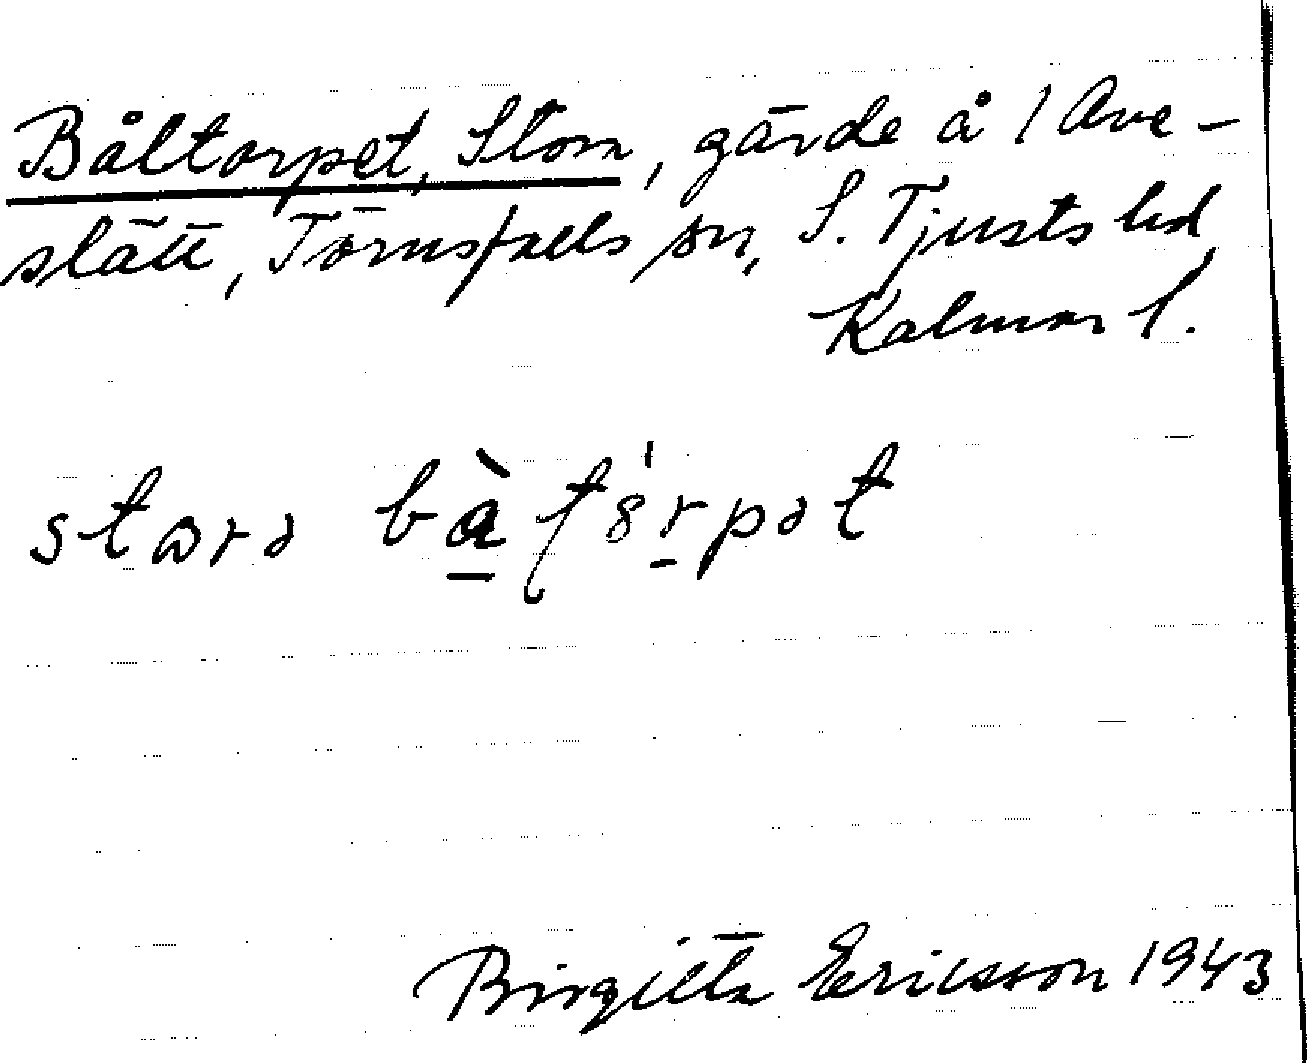 Båltorpet, Stora, gärde å 1 Ave-
slätt, Törnsfalls sn, S. Tjusts hd,
Kalmar l.
storə bàƭórpət
Birgitta Ericsson 1943